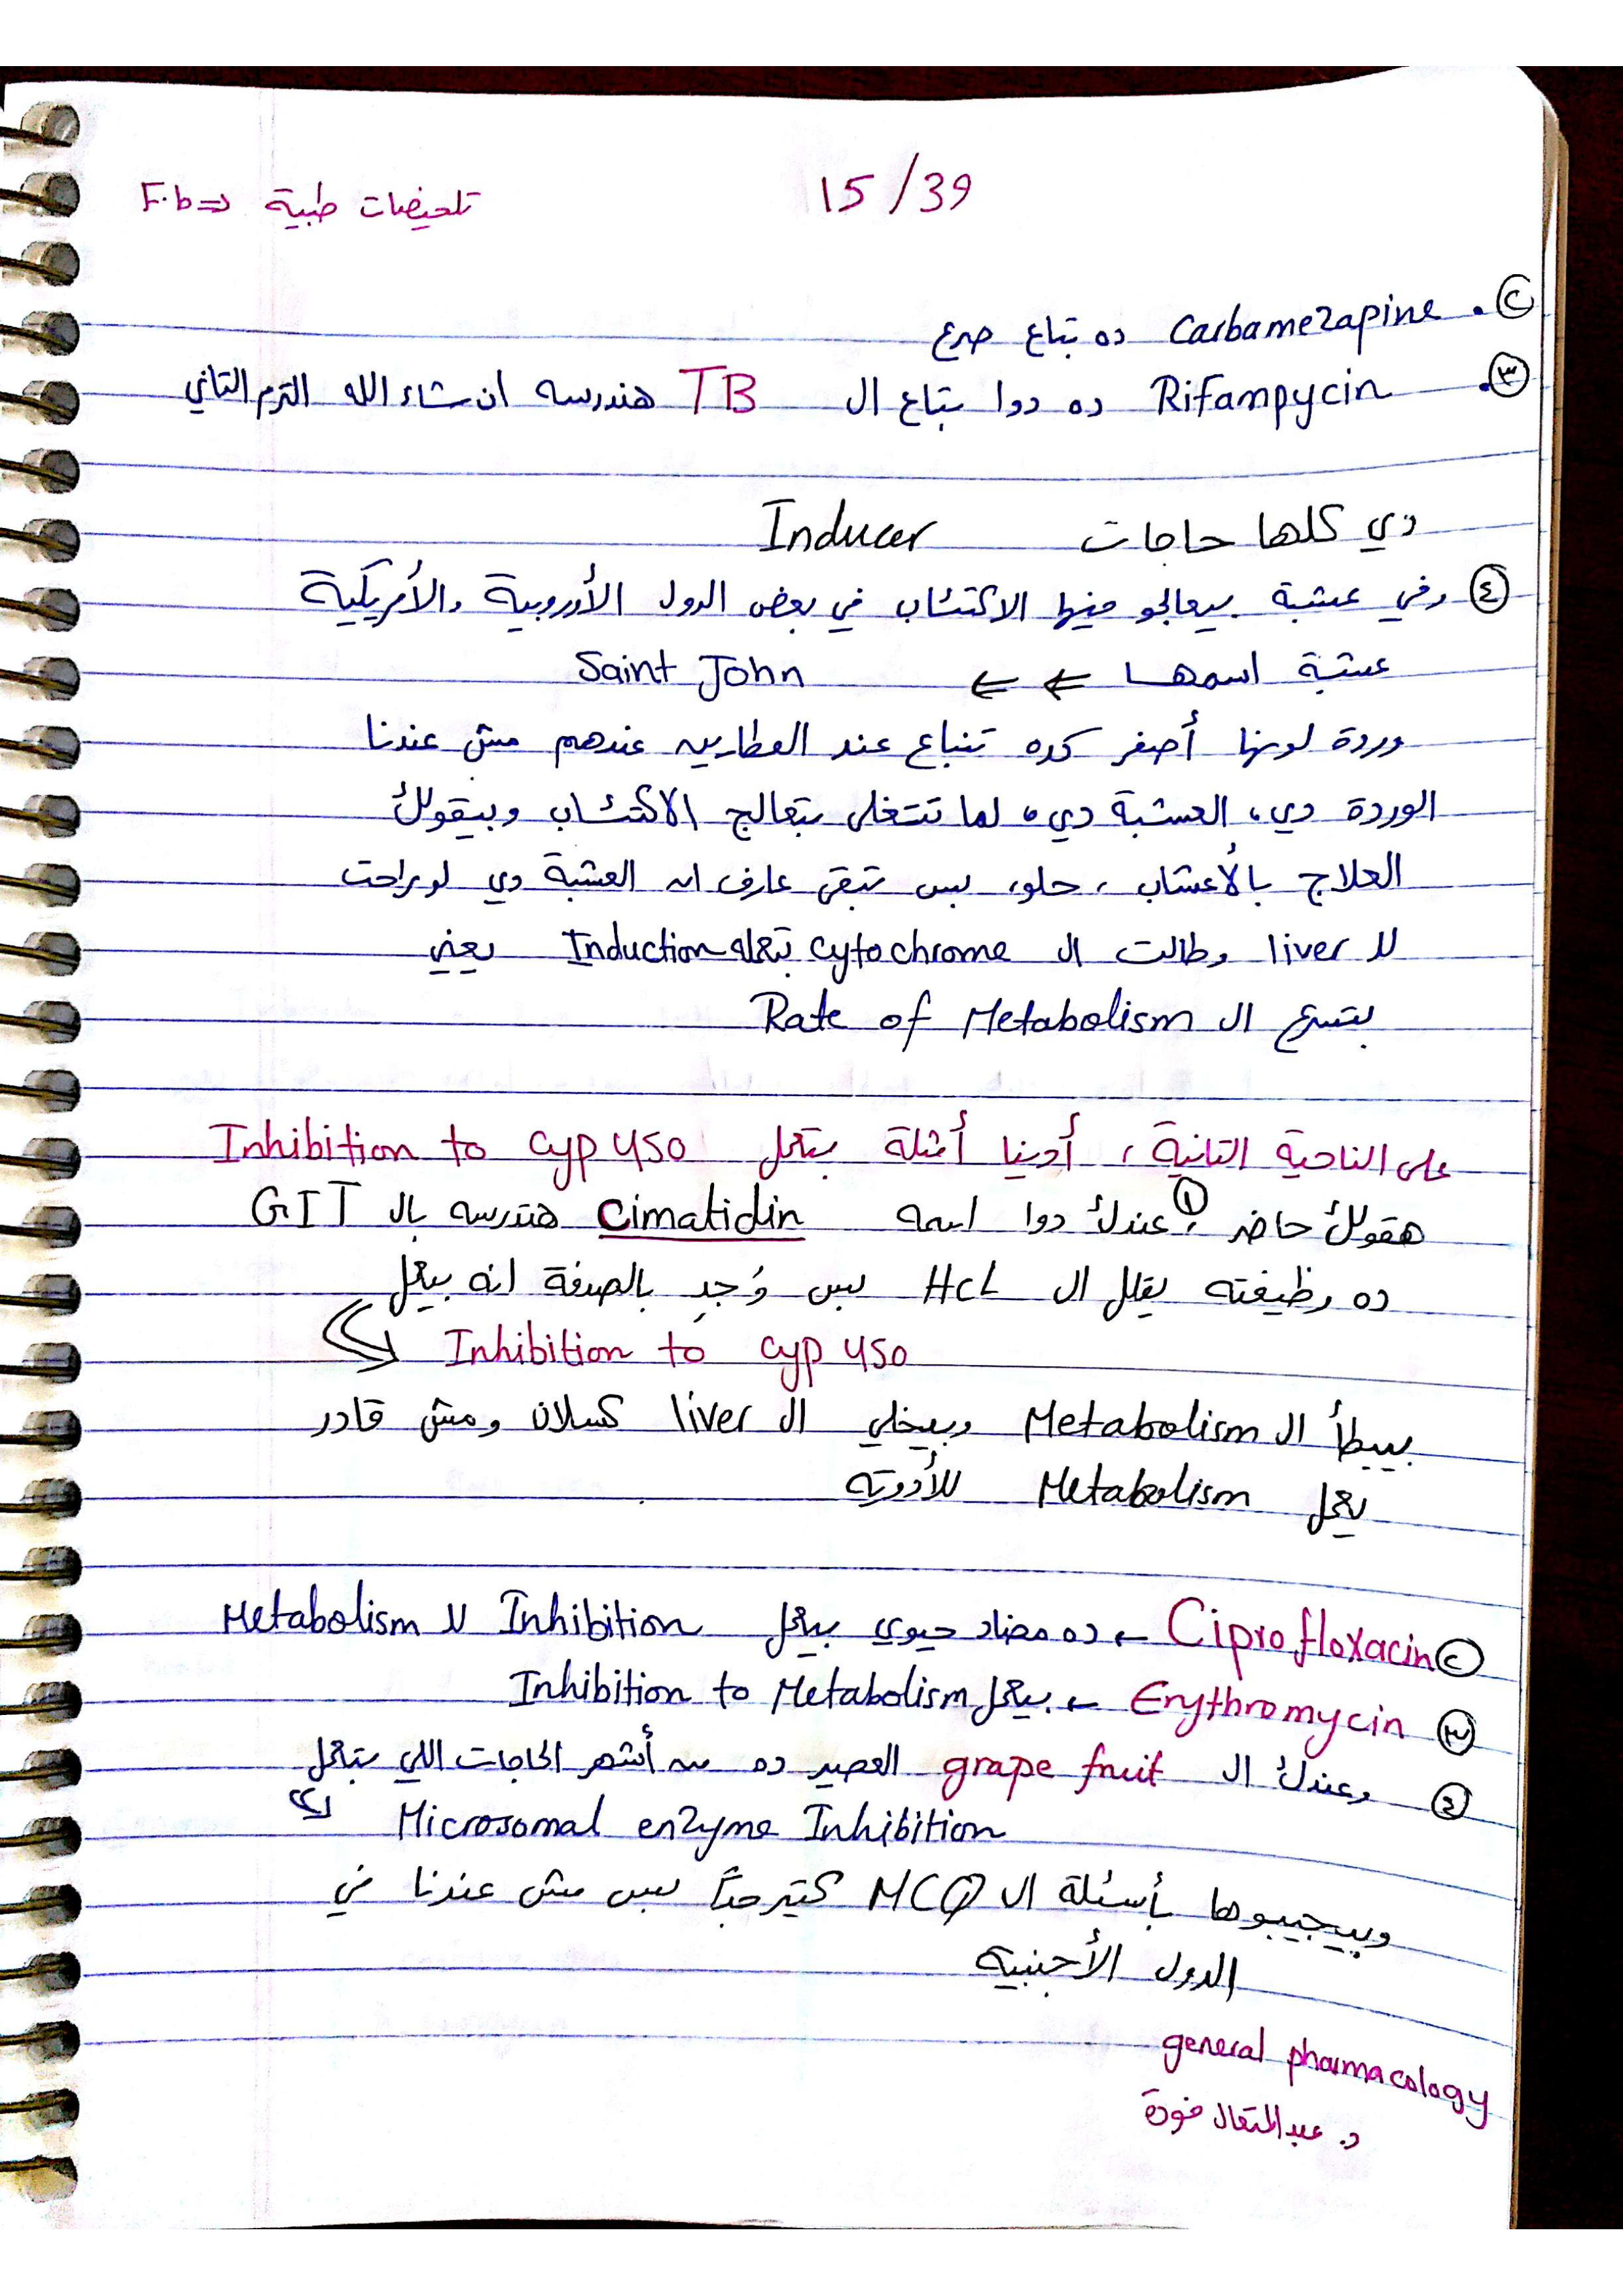 تلخيصات طبية <= F.b
15/39
② . Carbamezapine ده بتاع صرع
③. Rifampycin ده دوا بتاع ال TB هندرسه ان شاء الله الترم التاني
دي كلها حاجات Inducer
④ وفي عشبة بيعالجو فيها الاكتئاب في بعض الدول الأوروبية والأمريكية
عشبة اسمها <= <= Saint John
وردة لونها أصفر كده تنباع عند العطارين عندهم مش عندنا
الوردة دي، العشبة دي، لما تتغلى بتعالج الاكتئاب وبيقولك
العلاج بالأعشاب، حلو، بس تبقى عارف ان العشبة دي لو راحت
لل liver وطالت ال cytochrome بتعمله Induction يعني
بتسرع ال Rate of Metabolism
على الناحية التانية، أدينا أمثلة بتعمل Inhibition to cyp 450
هقولك حاضر، ① عندك دوا اسمه Cimatidin هندرسه بال GIT
ده وظيفته يقلل ال HCL بس وُجد بالصدفة انه بيعمل
Inhibition to cyp 450
بيبطأ ال Metabolism وبيخلي ال liver كسلان ومش قادر
يعمل Metabolism للأدوية
② Ciprofloxacin ← ده مضاد حيوي بيعمل Inhibition لل Metabolism
③ Erythromycin ← بيعمل Inhibition to Metabolism
④ وعندك ال grape fruit العصير ده من أشهر الحاجات اللي بتعمل
Microsomal enzyme Inhibition
وبيجيبوها بأسئلة ال MCQ كتير جداً بس مش عندنا في
الدول الأجنبية
general pharmacology
د. عبدالمتعال فودة